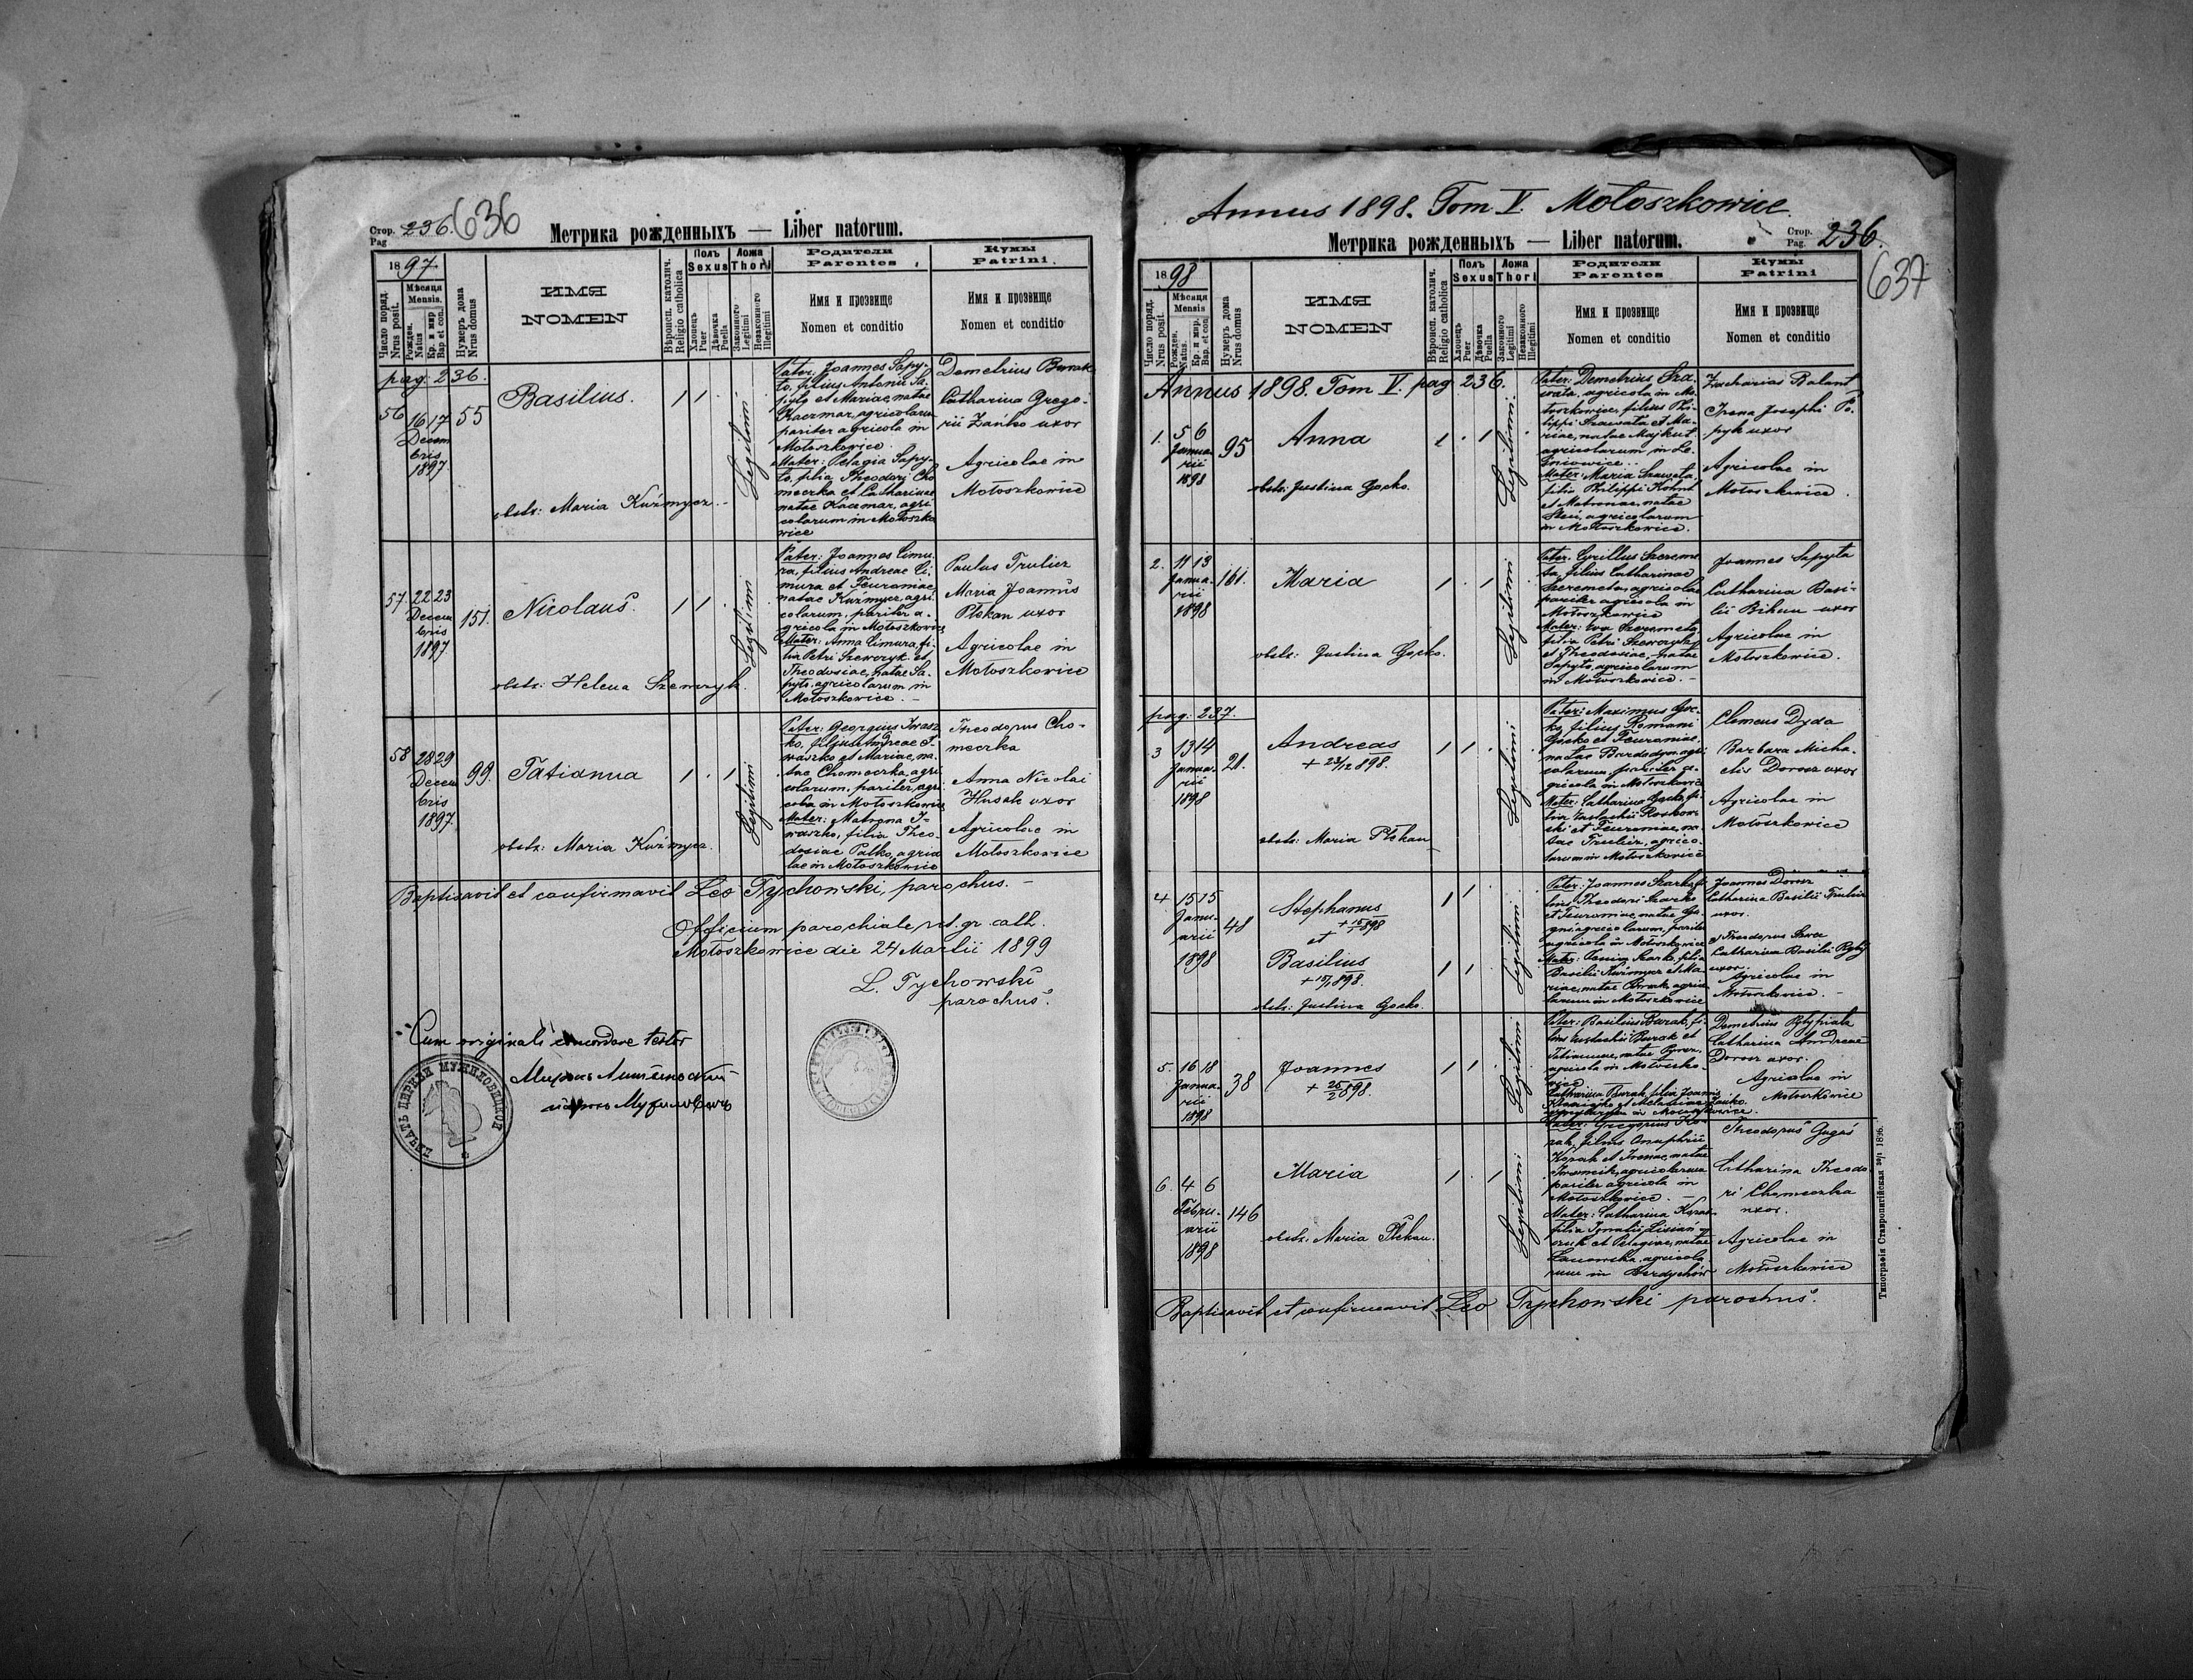 Стор. 236. 636
Pag
Метрика рожденныхъ — Liber natorum.
1897
Число поряд.
Nrus posit.
Мѣсяця
Mensis.
Рожден.
Natus
Кр. и мир
Bap et con.
Нумеръ дома
Nrus domus
ИМЯ
NOMEN
Вѣроисп. католич.
Religio catholica
Полъ
Sexus
Хлопецъ
Puer
Дѣвочка
Puella
Ложа
Thori
Законного
Legitimi
Незаконного
Illegitimi
Родители
Parentes
Имя и прозвище
Nomen et conditio
Кумы
Patrini.
Имя и прозвище
Nomen et conditio
pag. 236.
56 16 17 55
Decem
bris
1897.
Basilius.
1 1
Legitimi
obstr: Maria Kuźmycz. -
Pater: Joannes Sapy-
to, filius Antonii Sa-
pyto et Mariae, natae
Kaczmar, agricolarum
pariter agricola in
Mołoszkowice.
Mater: Pelagia Sapy-
to, filia Theodori Cho
meczka et Catharinae
natae Kaczmar, agri
colarum in Mołoszko
wice
Demetrius Burak
Catharina Grego-
rii Zańko uxor
Agricolae in
Mołoszkowice
57 22 23 151.
Decem
bris
1897
Nicolaus.
1 1
Legitimi
obstr: Helena Szewczyk.
Pater: Joannes Cimu
ra, filius Andreae Ci-
mura et Feuroniae,
natae Kuźmycz, agri
colarum, pariter a-
gricola in Mołoszkowice
Mater: Anna Cimura, fi-
lia Petri Szewczyk et
Theodosiae, natae Sa-
pyto, agricolarum in
Mołoszkowice. -
Paulus Trulicz
Maria Joannis
Płekan uxor
Agricolae in
Mołoszkowice
58 28 29 99.
Decem
bris
1897.
Tatianna
1 1
Legitimi
obstr: Maria Kuźmycz.
Pater: Georgius Iwasz
ko, filius Andreae I-
waszko et Mariae, na-
tae Chomeczka, agri
colarum, pariter agri
cola in Mołoszkowice
Mater: Matrona I-
waszko, filia Theo-
dosiae Palko, agrico
lae in Mołoszkowice
Theodorus Cho-
meczka
Anna Nicolai
Husak uxor
Agricolae in
Mołoszkowice
Baptisavit et confirmavit Leo Tychowski, parochus. -
Officium parochiale rit. gr. cath.
Mołoszkowice die 24 Martii 1899
L. Tychowski
parochus.
Cum originali concordare testor
ПЕЧАТЬ ЦЕРКВИ МУЖИЛОВЕЦКОИ
Annus 1898. Tom V. Mołoszkowice
Стор.
Pag. 236.
637
Метрика рожденныхъ — Liber natorum.
1898
Число поряд.
Nrus posit.
Мѣсяця
Mensis
Рожден.
Natus.
Кр. и мир.
Bap. et con
Нумеръ дома
Nrus domus
ИМЯ
NOMEN
Вѣроисп. католич.
Religio catholica
Полъ
Sexus
Хлопецъ
Puer
Дѣвочка
Puella
Ложа
Thori
Законного
Legitimi
Незаконного
Illegitimi
Родители
Parentes
Имя и прозвище
Nomen et conditio
Кумы
Patrini
Имя и прозвище
Nomen et conditio
Annus 1898. Tom V. pag 236.
1. 5 6 95
Janua-
rii
1898
Anna
1 1
Legitimi
obstr: Justina Gocko.
Pater: Demetrius Sza-
wata, agricola in Mo-
łoszkowice, filius Phi-
lippi Szawata et Ma-
riae, natae Majkut
agricolarum in
Mater: Maria Szawata,
filia Philippi
et Matronae, natae
agricolarum
in Mołoszkowice.
Zacharias Balant
Irena Josephi Po-
pyk uxor
Agricolae in
Mołoszkowice.
2. 11 13 161.
Janua-
rii
1898
Maria
1 1
Legitimi
obstr: Justina Gocko.
Pater: Cyrillus Szereme
ta, filius Catharinae
Szeremeta, agricolae
pariter agricola in
Mołoszkowice
Mater: Eva Szeremeta
filia Petri Szewczyk
et Theodosiae, natae
Sapyto, agricolarum
in Mołoszkowice. -
Joannes Sapyta
Catharina Basi-
lii Bihun uxor
Agricolae in
Mołoszkowice.
pag. 237.
3 13 14 21.
Janua-
rii
1898
Andreas
+ 23/12 898.
1 1
Legitimi
obstr: Maria Płekan
Pater: Maximus Goc-
ko, filius Romani
Gocko et Feuroniae,
natae agri
colarum, pariter a-
gricola in Mołoszkowice
Mater: Catharina Gocko, fi-
lia Eustachii
et Feuroniae, na-
tae Trulicz, agrico-
larum in Mołoszkowice
Clemens Dyda
Barbara Micha-
elis Dorosz uxor
Agricolae in
Mołoszkowice
4. 15 15 48
Janu-
arii
1898
Stephanus
et
Basilius
1 1
1 1
Legitimi
obstr: Justina Gocko.
Pater: Joannes Szarko, fi-
lius Theodori Szarko
et Feuroniae, natae
agricolarum, pariter
agricola in Mołoszkowice
Mater: Szarko, filia
Basilii Kuźmycz et Ma-
riae, natae Burak, agrico
larum in Mołoszkowice
Joannes Dorosz
Catharina Basilii Trulicz
uxor.
et Theodorus
Catharina Basilii
uxor.
Agricolae in
Mołoszkowice. -
5. 16 18 38
Janua-
rii
1898
Joannes
+ 25/2 898.
1 1
Legitimi
Pater: Basilius Burak, fi-
lius Eustachii Burak et
Tatiannae, natae
agricola in Mołoszko-
wice
Catharina Burak, filia Joannis
in Mołoszkowice.
Demetrius
Catharina Andreae
Dorosz uxor.
Agricolae in
Mołoszkowice
6. 4 6 146
Febru-
arii
1898
Maria
1 1
Legitimi
obstr: Maria Płekan.
Pater: Gregorius
filius Onuphrii
et Irenae, natae
agricolarum
pariter agricola in
Mołoszkowice. -
Mater: Catharina
filia Ignatii
et Pelagiae, natae
agricola
rum in Berdychów
Theodorus
Catharina Theodo
ri Chomeczka
uxor.
Agricolae in
Mołoszkowice
Baptisavit et confirmavit Leo Tychowski parochus.
Типографія Ставропигійская 1896.